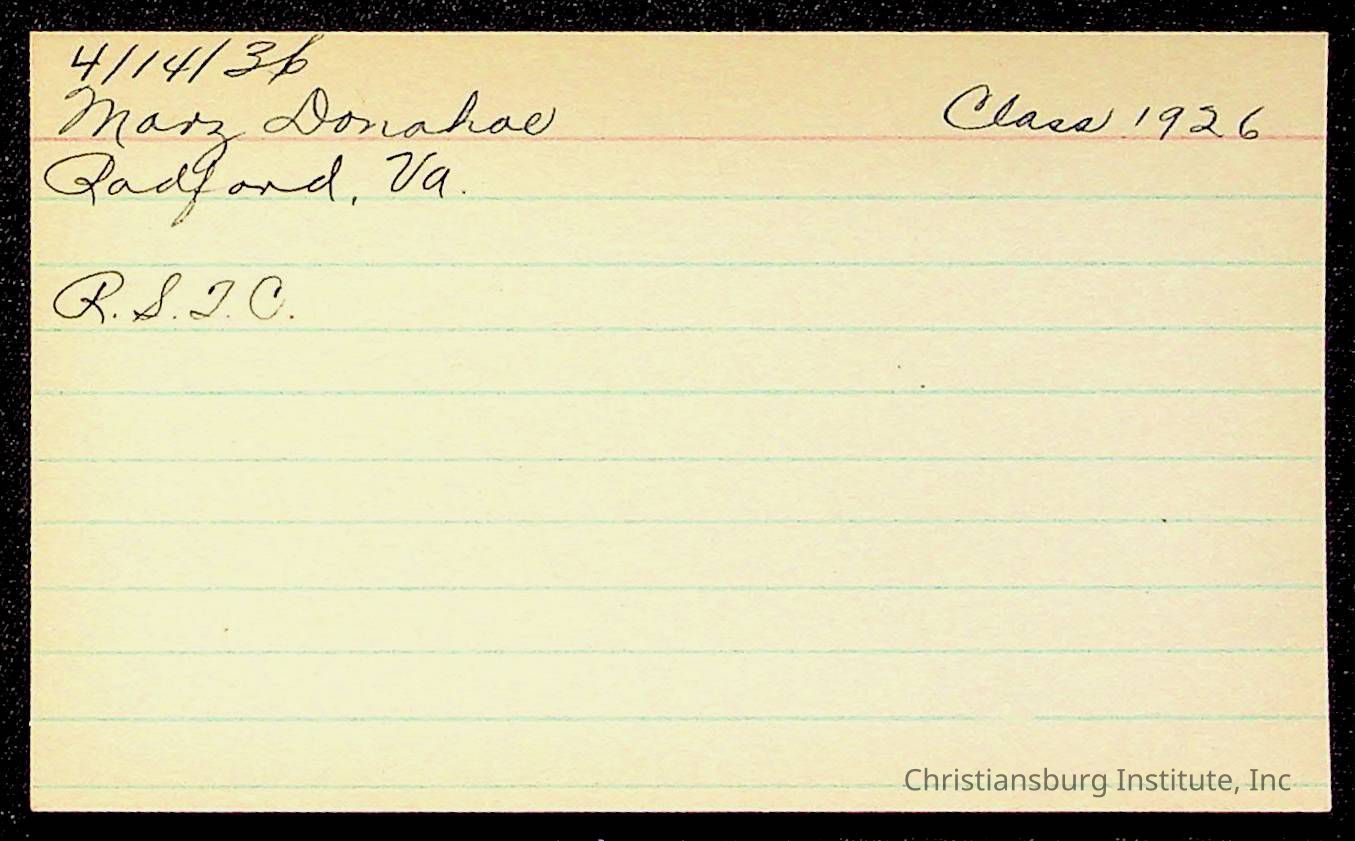 4/14/36
Mary Donahoe Class 1926
Radford, Va.
R.S.T.C.
Christiansburg Institute, Inc